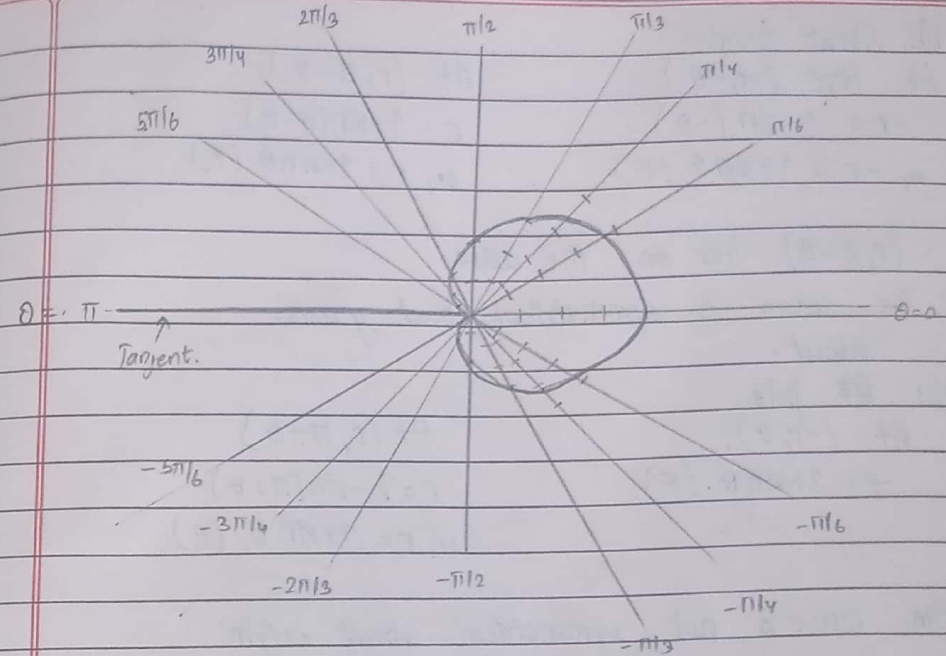 2π/3
π/2
π/3
3π/4
π/4
5π/6
π/6
θ = π
θ=0
Tangent.
-5π/6
-3π/4
-π/6
-2π/3
-π/2
-π/4
-π/3